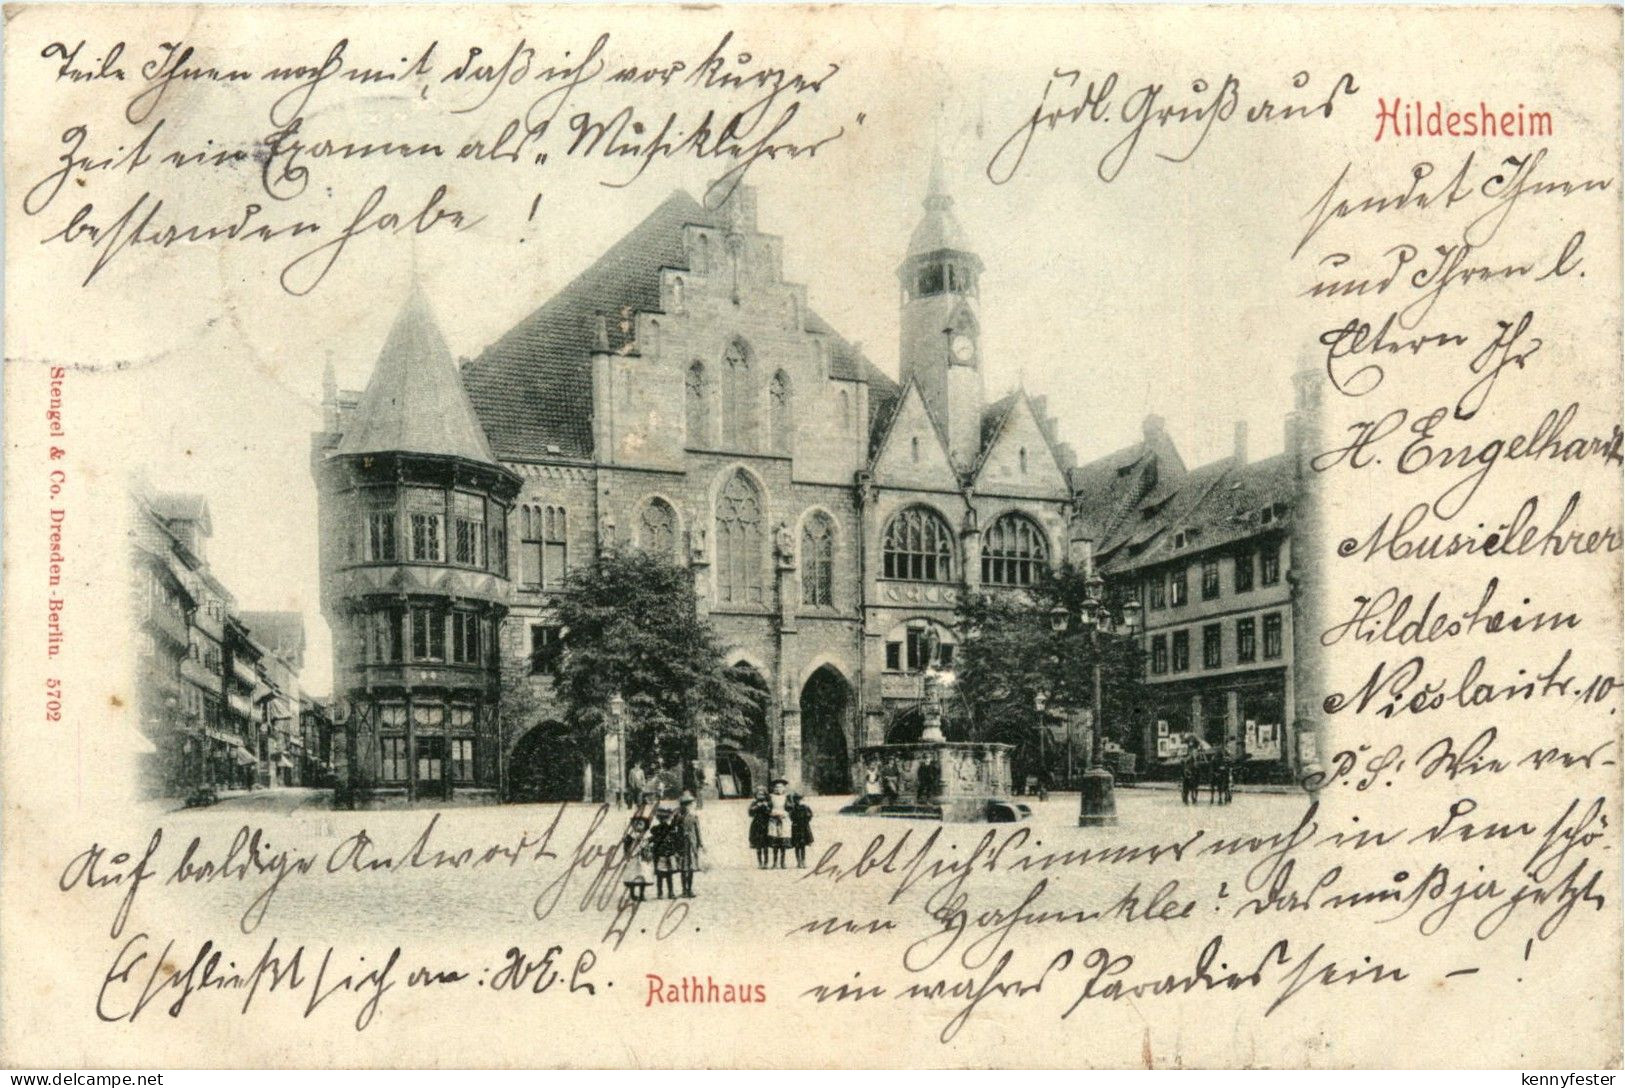 Teile Ihnen noch mit, daß ich vor kurzer
Zeit ein Examen als „Musiklehrer"
bestanden habe !
Frdl. Gruß aus
Hildesheim
sendet Ihnen
und Ihren l.
Eltern Ihr
H. Engelhardt
Musiklehrer
Hildesheim
Nicolaistr. 10.
P. S! Wie ver-
lebt sich's immer noch in dem schö-
nen Hahnenklee? Das muß ja jetzt
ein wahres Paradies sein – !
Auf baldige Antwort hofft
D. O.
Es schließt sich an:
Rathhaus
Stengel & Co. Dresden-Berlin. 5702
www.delcampe.net
kennyfester